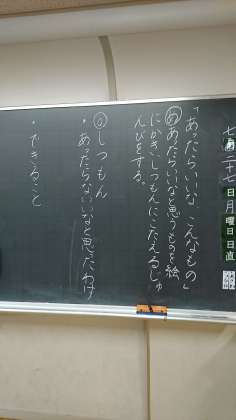 七月二十七日月曜日日直
「あったらいいな こんなもの」
めあったらいいなと思うものを絵
にかき、しつもんにこたえるじゅ
んびをする。
◎しつもん
・あったらないいなと思ったわけ
・できること